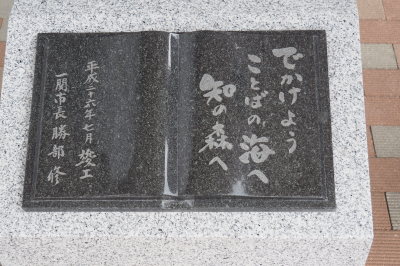 でかけよう
ことばの海へ
知の森へ
平成二十六年七月 竣工
一関市長 勝部 修